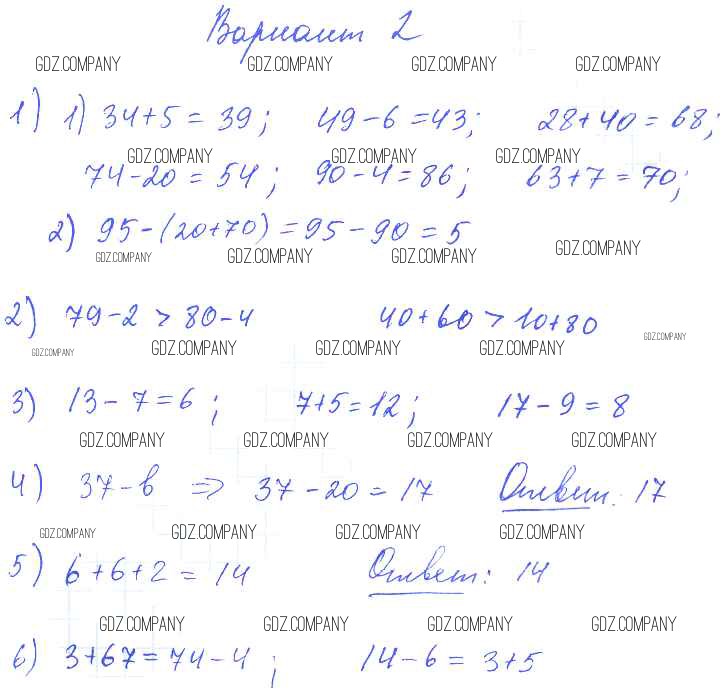 Вариант 2
GDZ.COMPANY GDZ.COMPANY GDZ.COMPANY GDZ.COMPANY
1) 1) 34+5 = 39; 49-6 =43; 28+40 = 68;
GDZ.COMPANY GDZ.COMPANY GDZ.COMPANY
74-20 = 54; 90-4=86; 63+7=70;
2) 95-(20+70) = 95-90=5
GDZ.COMPANY GDZ.COMPANY GDZ.COMPANY GDZ.COMPANY
2) 79-2 > 80-4 40+60 > 10+80
GDZ.COMPANY GDZ.COMPANY GDZ.COMPANY GDZ.COMPANY GDZ.COMPANY
3) 13-7=6; 7+5=12; 17-9=8
GDZ.COMPANY GDZ.COMPANY GDZ.COMPANY GDZ.COMPANY
4) 37-в ⇒ 37-20=17 Ответ: 17
GDZ.COMPANY GDZ.COMPANY GDZ.COMPANY GDZ.COMPANY
5) 6+6+2=14 Ответ: 14
GDZ.COMPANY GDZ.COMPANY GDZ.COMPANY GDZ.COMPANY
6) 3+67=74-4; 14-6 = 3+5